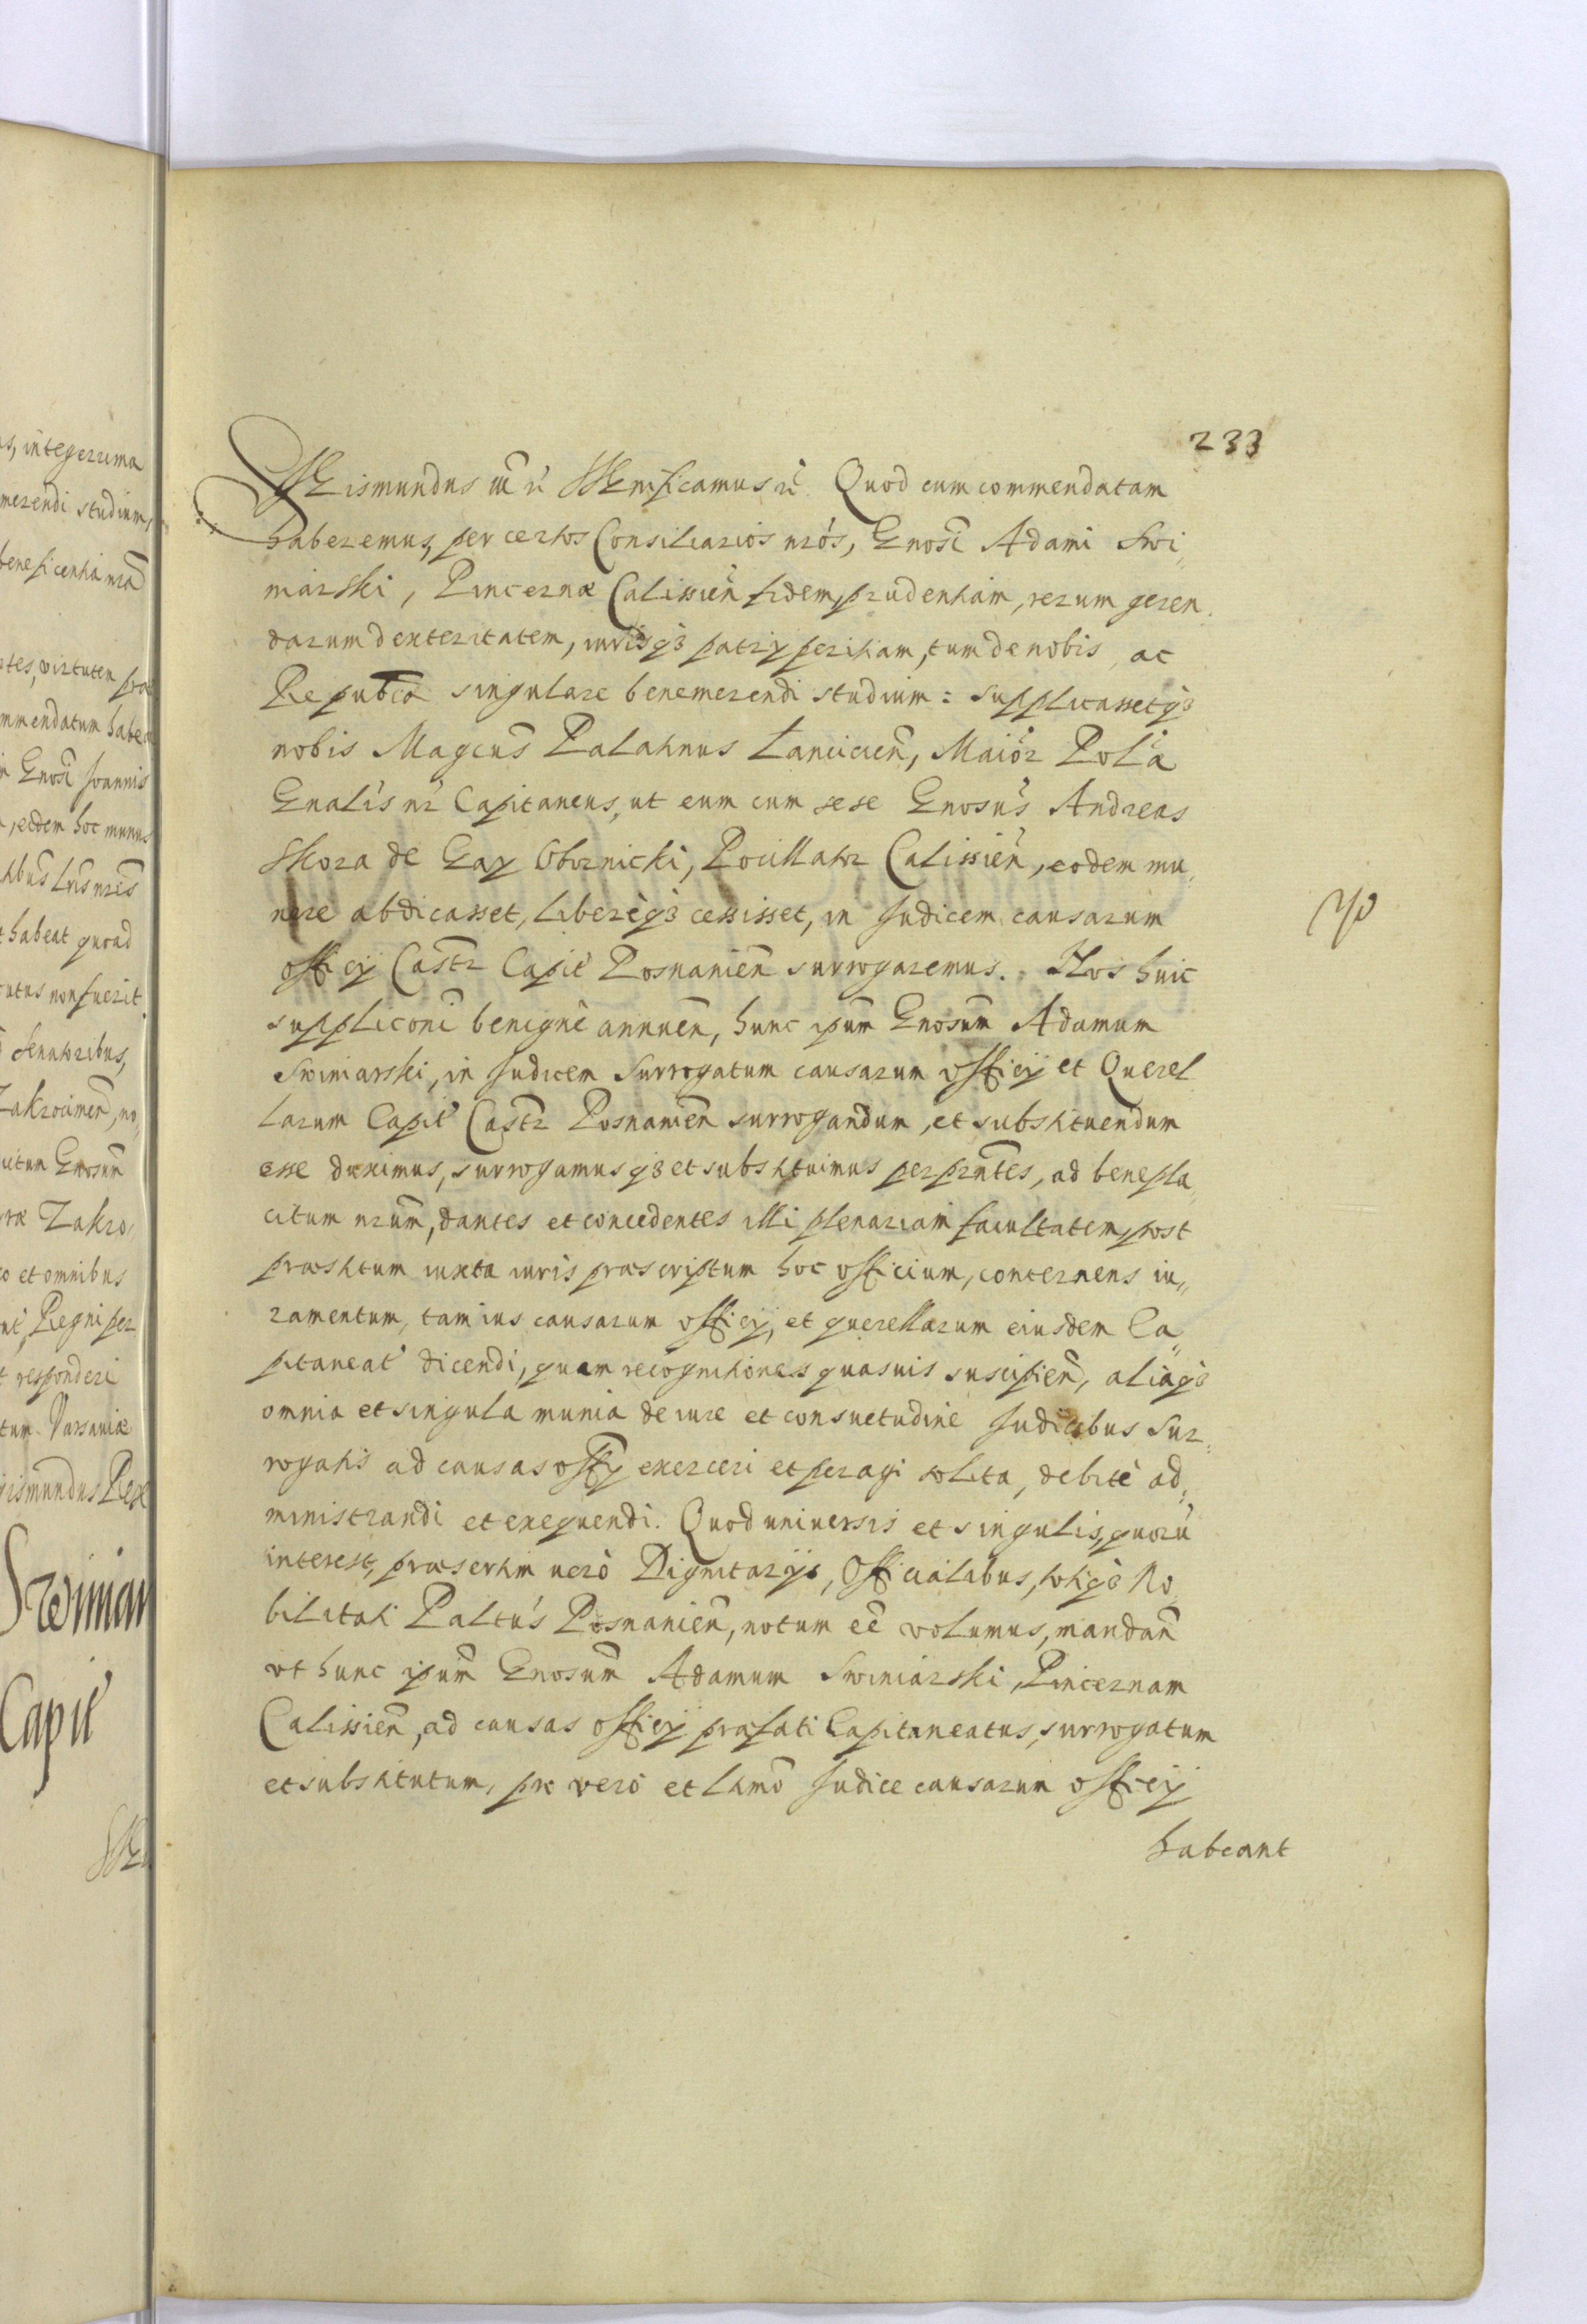 233
Sigismundus III etc Significamus etc. Quod cum commendatam
haberemus, per certos Consiliarios nrós, Gnosi Adami Swi,,
niarski, Pincernæ Calissien̄ fidem, prudentiam, rerum geren,
darum dexteritatem, iurisq3 patrij peritiam, tum de nobis, ac
Republca singulare benemerendi studium: supplicassetq3
nobis Magcus Palatinus Lancicien̄, Maior Pola
Gnalis nr Capitaneus, ut eum cum sese Gnosus Andreas
Skora de Gay Obornicki, Pocillator Calissien̄, eodem mu,
nere abdicasset, liberèq3 cessisset, in Judicem causarum
officij Castr Capit Posnanien̄ surrogaremus. Nos huic
supplicōni benignè annuen̄, hunc ipum̄ Gnosum̄ Adamum
Swiniarski, in Judicem Surrogatum causarum officij et Querel
larum Capit Castr Posnanien̄ surrogandum, et substituendum
esse duximus, surrogamusq3 et substituimus per prn̄tes, ad benepla,
citum nrum̄, dantes et concedentes illi plenariam facultatem, post
præstitum iuxta iuris præscriptum hoc officium, concernens iu,,
ramentum, tam ius causarum officij, et querellarum eiusdem Ca,,
pitaneat dicendi, quam recognitiones quasuis suscipien̄, aliaq3
omnia et singula munia de iure et consuetudine Judicibus Sur,,
rogatis ad causas officij exerceri et peragi solita, debitè ad,,
ministrandi et exequendi. Quod uniuersis et singulis, quorū
interest, præsertim uerò Dignitarijs, Officialibus, totiq3 No,
bilitati Palt́us Posnanien̄, notum eē volumus, mandan̄
vt hunc ipum̄ Gnosum̄ Adamum Swiniarski, Pincernam
Calissien̄, ad causas officij præfati Capitaneatus, surrogatum
et substitutum, pro vero et ltimo Judice causarum officij
habeant